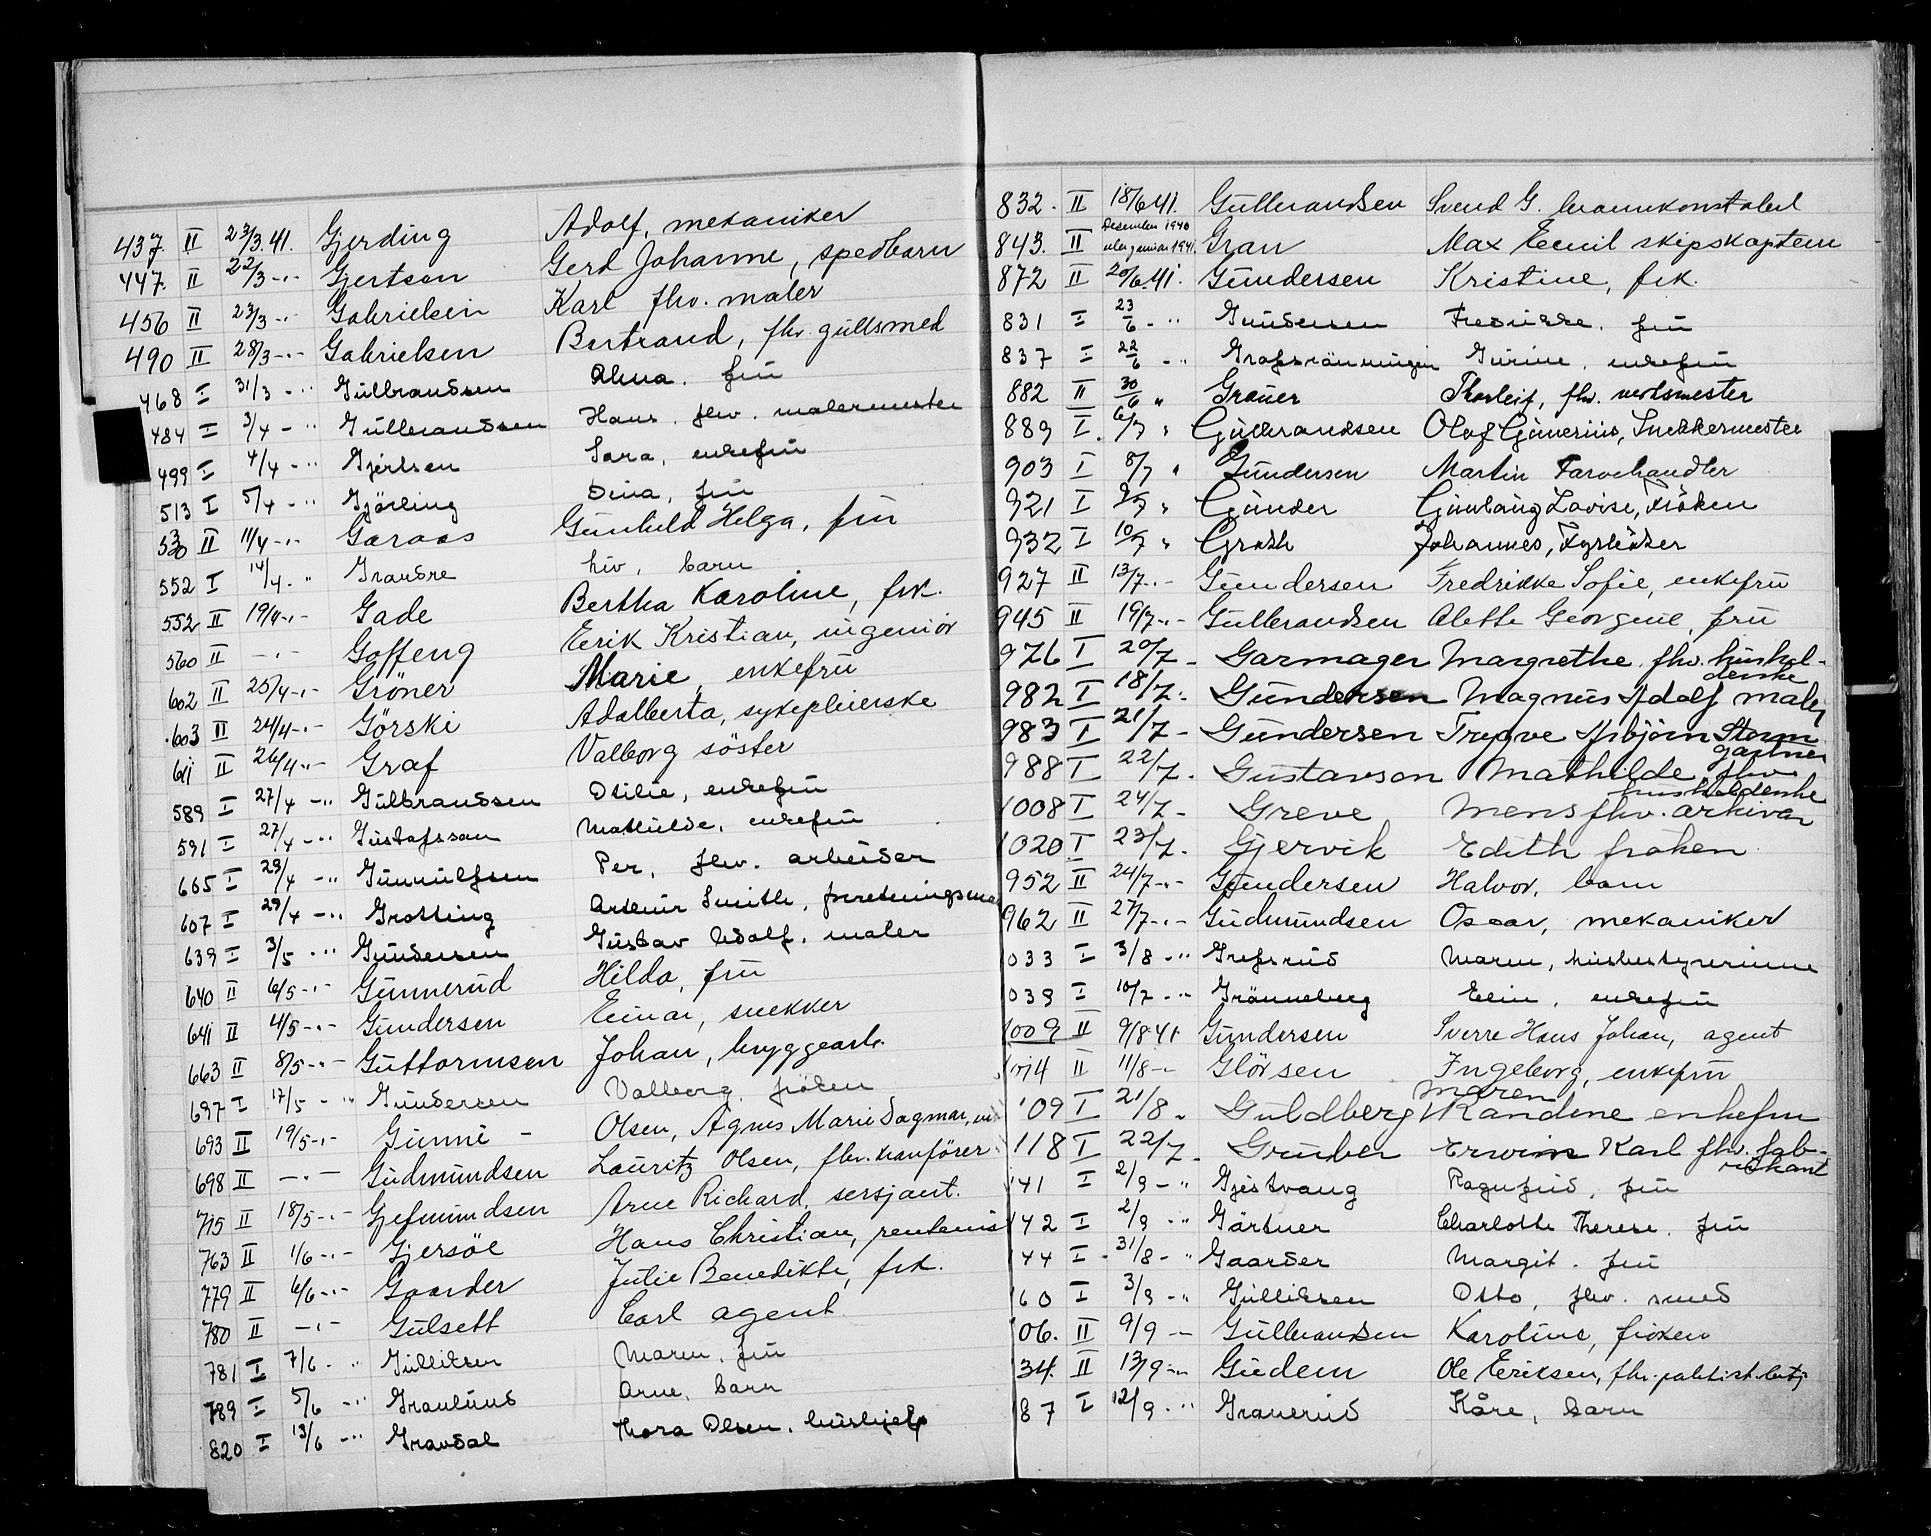 437. II 23/3.41. Gjerding Adolf, mekaniker
447. II 22/3 -"- Gjertsen Gerd Johanne, spedbarn
456 II 23/3 -"- Gabrielsen Karl fhv. maler
490 II 28/3 -"- Gabrielsen Bertrand, fhv. gullsmed
468 I 31/3 -"- Gulbrandsen Alma. fru
484 I 3/4 -"- Gulbrandsen Hans, fhv. malermester
499 I 4/4 -"- Gjertsen Sara, enkefru
513 I 5/4 -"- Gjörling Dina, fru
530 II 11/4 -"- Garaas Gunhild Helga, fru
552 I 14/4 -"- Grandre Liv, barn
552 II 19/4 -"- Gade Bertha Karoline, frk.
560 II -"- Goffeng Erik Kristian, ingeniör
602 II 25/4 -"- Gröner Marie, enkefru
603 II 24/4 -"- Görski Adalberta, sykepleierske
611 II 26/4 -"- Graf Valborg söster
589 I 27/4 -"- Gulbrandsen Otilie, enkefru
591 I 27/4 -"- Gustafsson Mathilde, enkefru
605 I 29/4 -"- Gunnulfsen Per, fhv. arbeider
607 I 29/4 -"- Grotting Arthur Smith, forretningsma
639 I 3/5 -"- Gundersen Gustav Adolf, maler
640 II 6/5 -"- Gunnerud Hilda, fru
641 II 4/5 -"- Gundersen Einar, snekker
663 II 8/5 -"- Guttormsen Johan, bryggearb.
697 I 17/5 -"- Gundersen Valborg, fröken
693 II 19/5 -"- Gunni - Olsen, Agnes Marie Dagmar,
698 II -"- Gudmundsen Lauritz Olsen, fhv.
715 II 18/5 -"- Gjefmundsen Arne Richard, sersjant.
763 II 1/6 -"- Gjersöe Hans Christian, rentenis
779 II 6/6 -"- Gaarder Julie Benedikte, frk.
780 II -"- Gulsett Carl agent
781 I 7/6 -"- Gulliksen Maren, fru
789 I 5/6 -"- Granlund Arne, barn
820 I 13/6 -"- Gravdal Thora Olsen, hushjelp
832. II 18/6 41. Gulbrandsen Svend G. brannkonstabel
843. II Desember 1940 eller januar 1941. Gran Max Emil skipskaptein
872 II 20/6.41. Gundersen Kristine, frk.
831 I 23/6 -"- Gundersen Fredrikke, fru
837 I 22/6 -"- Grafsrönningen Gurine, enkefru
882 II 30/6 " Grauer Thorleif, fhv. verksmester
889 I 6/7 " Gulbrandsen Olaf Gunerius, Snekkermester
903 I 8/7 " Gundersen Martin Farvehandler
921 I 9/7 " Gunder Gunlaug Lovise, Fröken
932 I 10/7 " Groth Johannes, Fyrböter
927 II 13/7 -"- Gundersen Fredrikke Sofie, enkefru
945 II 19/7 -"- Gulbrandsen Alette Georgine, fru
976 I 20/7 - Garmager Margrethe fhv. hushol-
derske
982 I 18/7 - Gundersen Magnus Adolf maler
983 I 21/7 - Gundersen Trygve Asbjörn Storm
gartner
988 I 22/7 - Gustavson Mathilde, fhv.
husholderske
1008 I 24/7 - Greve Mens fhv. arkivar
1020 I 23/7 - Gjervik Edith fröken
952 II 24/7 -"- Gundersen Halvor, barn
962 II 27/7 -"- Gudmundsen Oscar, mekaniker
033 I 3/8 -"- Grefsrud Maren, husbestyrerinne
039 I 10/7 -"- Grönneberg Elin, enkefru
1009 II 9/8 41 Gundersen Sverre Hans Johan, agent
1014 II 11/8 -"- Glörsen Ingeborg, enkefru
109 I 21/8 - Guldberg Maren Randine enkefru
118 I 22/7 - Gruber Erwin Karl fhv. fab-
rikkant
141 I 2/9 -"- Gjestvang Ragnfrid, fru
142 I 2/9 -"- Gärtner Charlotte Therese, fru
44 I 31/8 -"- Gaarder Margit. fru
60 I 3/9 -"- Gulliksen Otto, fhv. smed
06. II 9/9 -"- Gulbrandsen Karoline, fröken
34. II 13/9 -"- Gudem Ole Eriksen, fhv. politist.betj
87 I 12/9 -"- Granerud Kåre, barn